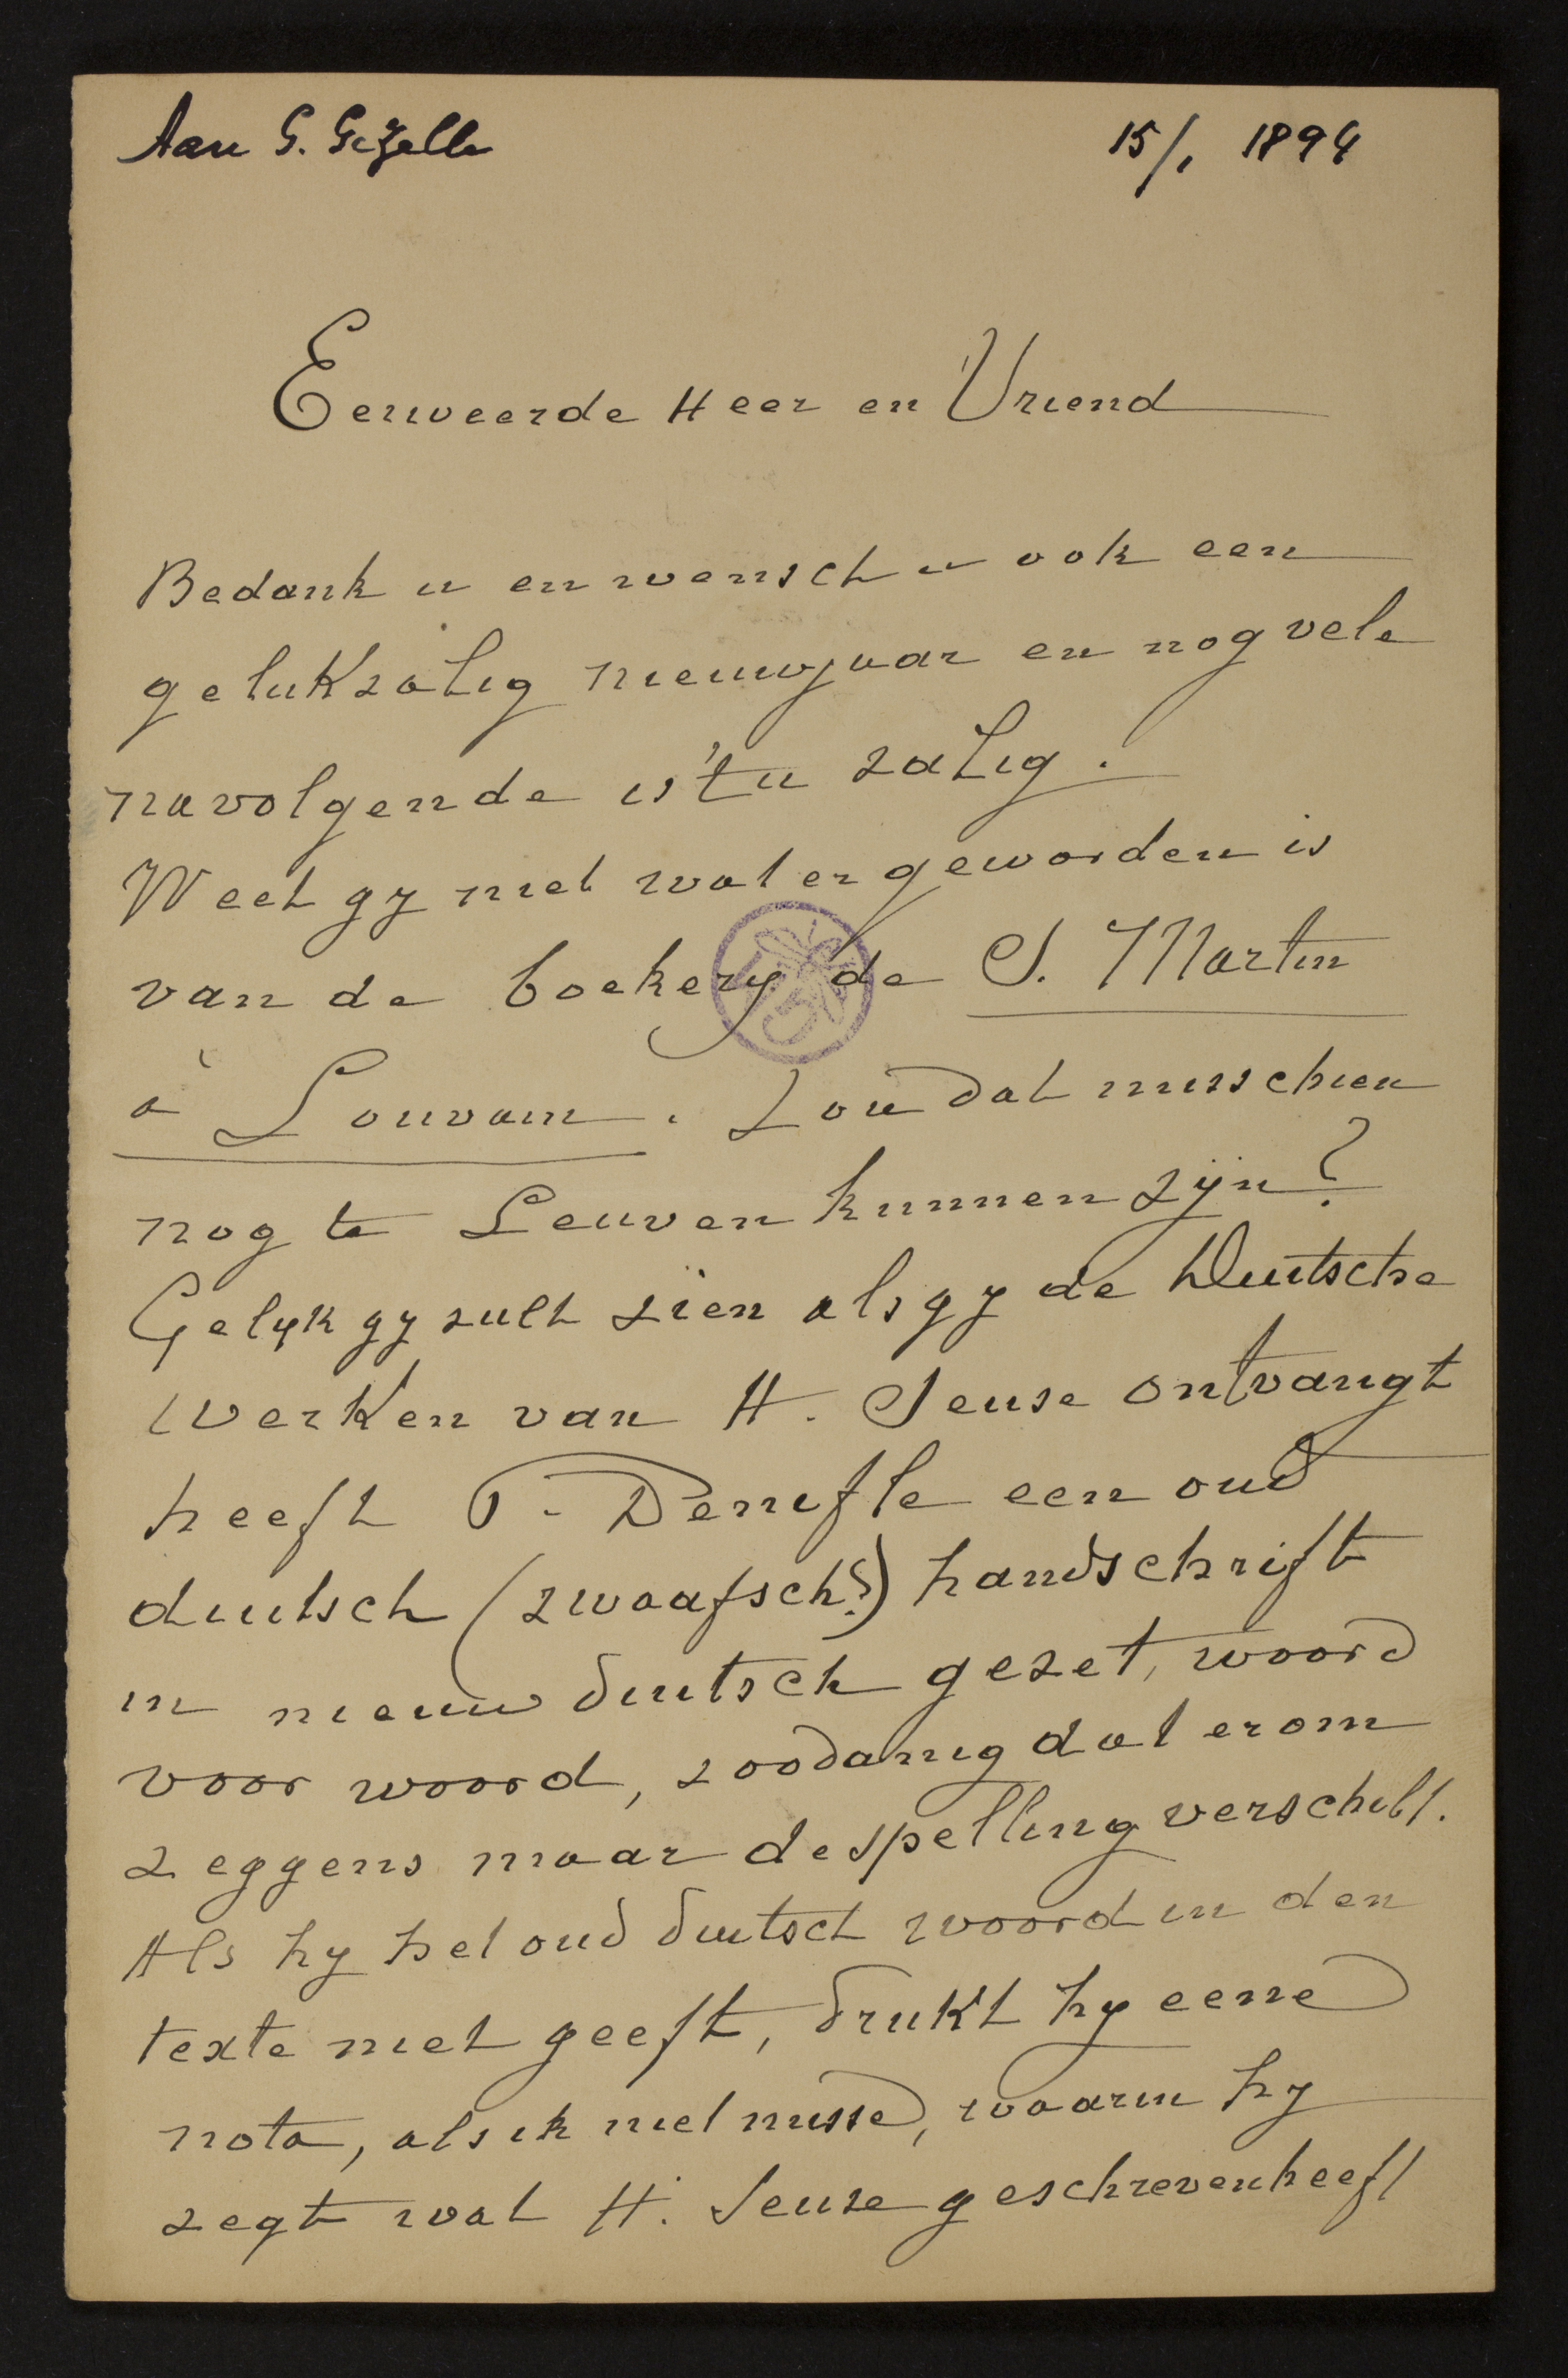 Aan G. Gezelle
15/1 1894
Eerweerde Heer en Vriend
Bedank u en wensch u ook een
gelukzalig nieuwjaar en nog vele
navolgende is 't u zalig.
Weet gy niet wat er geworden is
van de boekery de S. Martin
à Louvain. Zou dat misschien
nog te Leuven kunnen zijn?
Gelyk gy zult zien als gy de Duitsche
werken van H. Seuse ontvangt
heeft P. Denifle een oud
duitsch (zwaafsch?) handschrift
in nieuw duitsch gezet, woord
voor woord, zoodanig dat er om
zeggens maar de spelling verschilt.
Als hy het oud duitsch woord in den
texte niet geeft, drukt hy eene
nota, als ik niet misse, waarin hy
zegt wat H. Seuse geschreven heeft